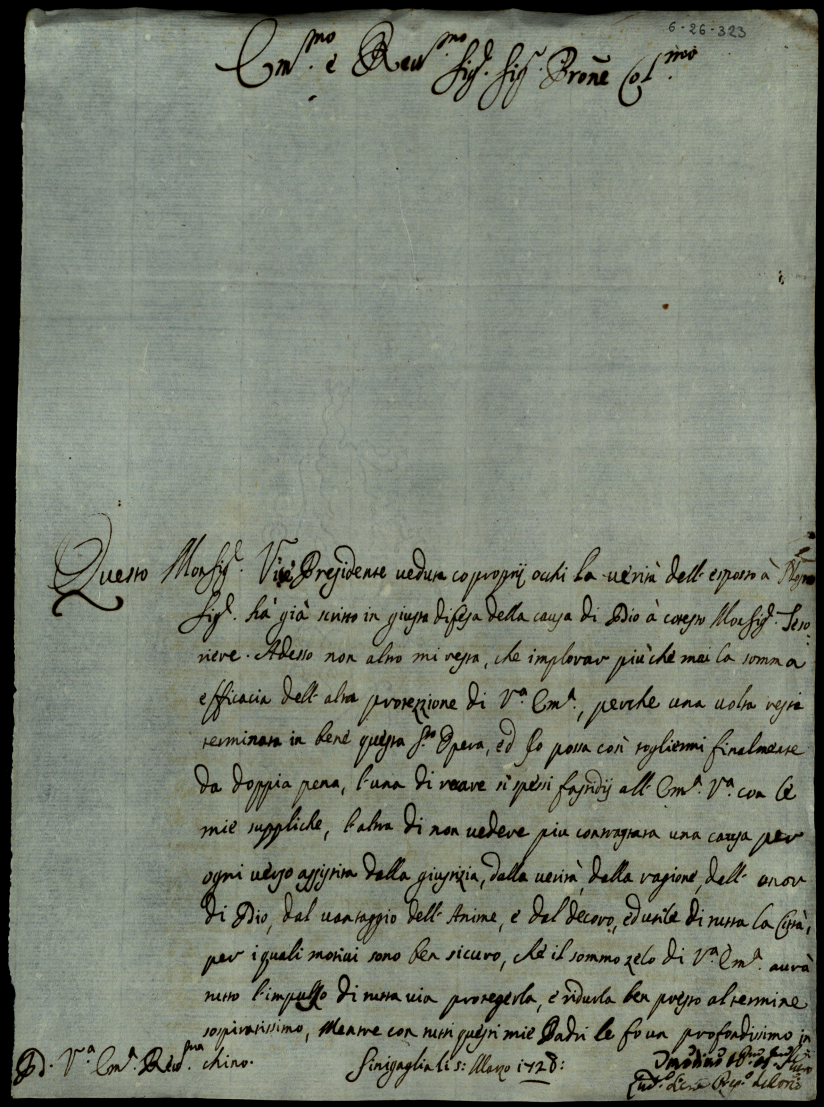 6-26-323
Em.mo e Reu.mo Sig.r Sig.r Prone Col.mo
Questo Monsig.r Vice Presidente veduta co proprij occhi la verità dell'esposto à
Sig.r hà già scritto in giusta difesa della causa di Dio à cotesto Monsig.r Teso
riere. Adesso non altro mi resta, che implorar più che mai la somma
efficacia dell'alta protezzione di V.a Em.a, perche una volta resti
terminata in bene questa S.ta Opera, ed Io possa così togliermi finalmente
da doppia pena, l'una di recare sì spessi fastidij all'Em.a V.a con le
mie suppliche, l'altra di non vedere piu contrastata una causa per
ogni verso assistita dalla giustizia, dalla verità, dalla ragione, dall'onor
di Dio, dal vantaggio dell'Anime, e dal decoro, ed utile di tutta la Città,
per i quali motivi sono ben sicuro, che il sommo zelo di V.a Em.a aurà
tutto l'impulso di tutta via protegerla, e ridurla ben presto al termine
sospiratissimo, Mentre con tutti questi miei Padri le fo un profondissimo in
chino.
Di V.a Em.a Reu.ma
Sinigaglia li 5: Marzo 1728: